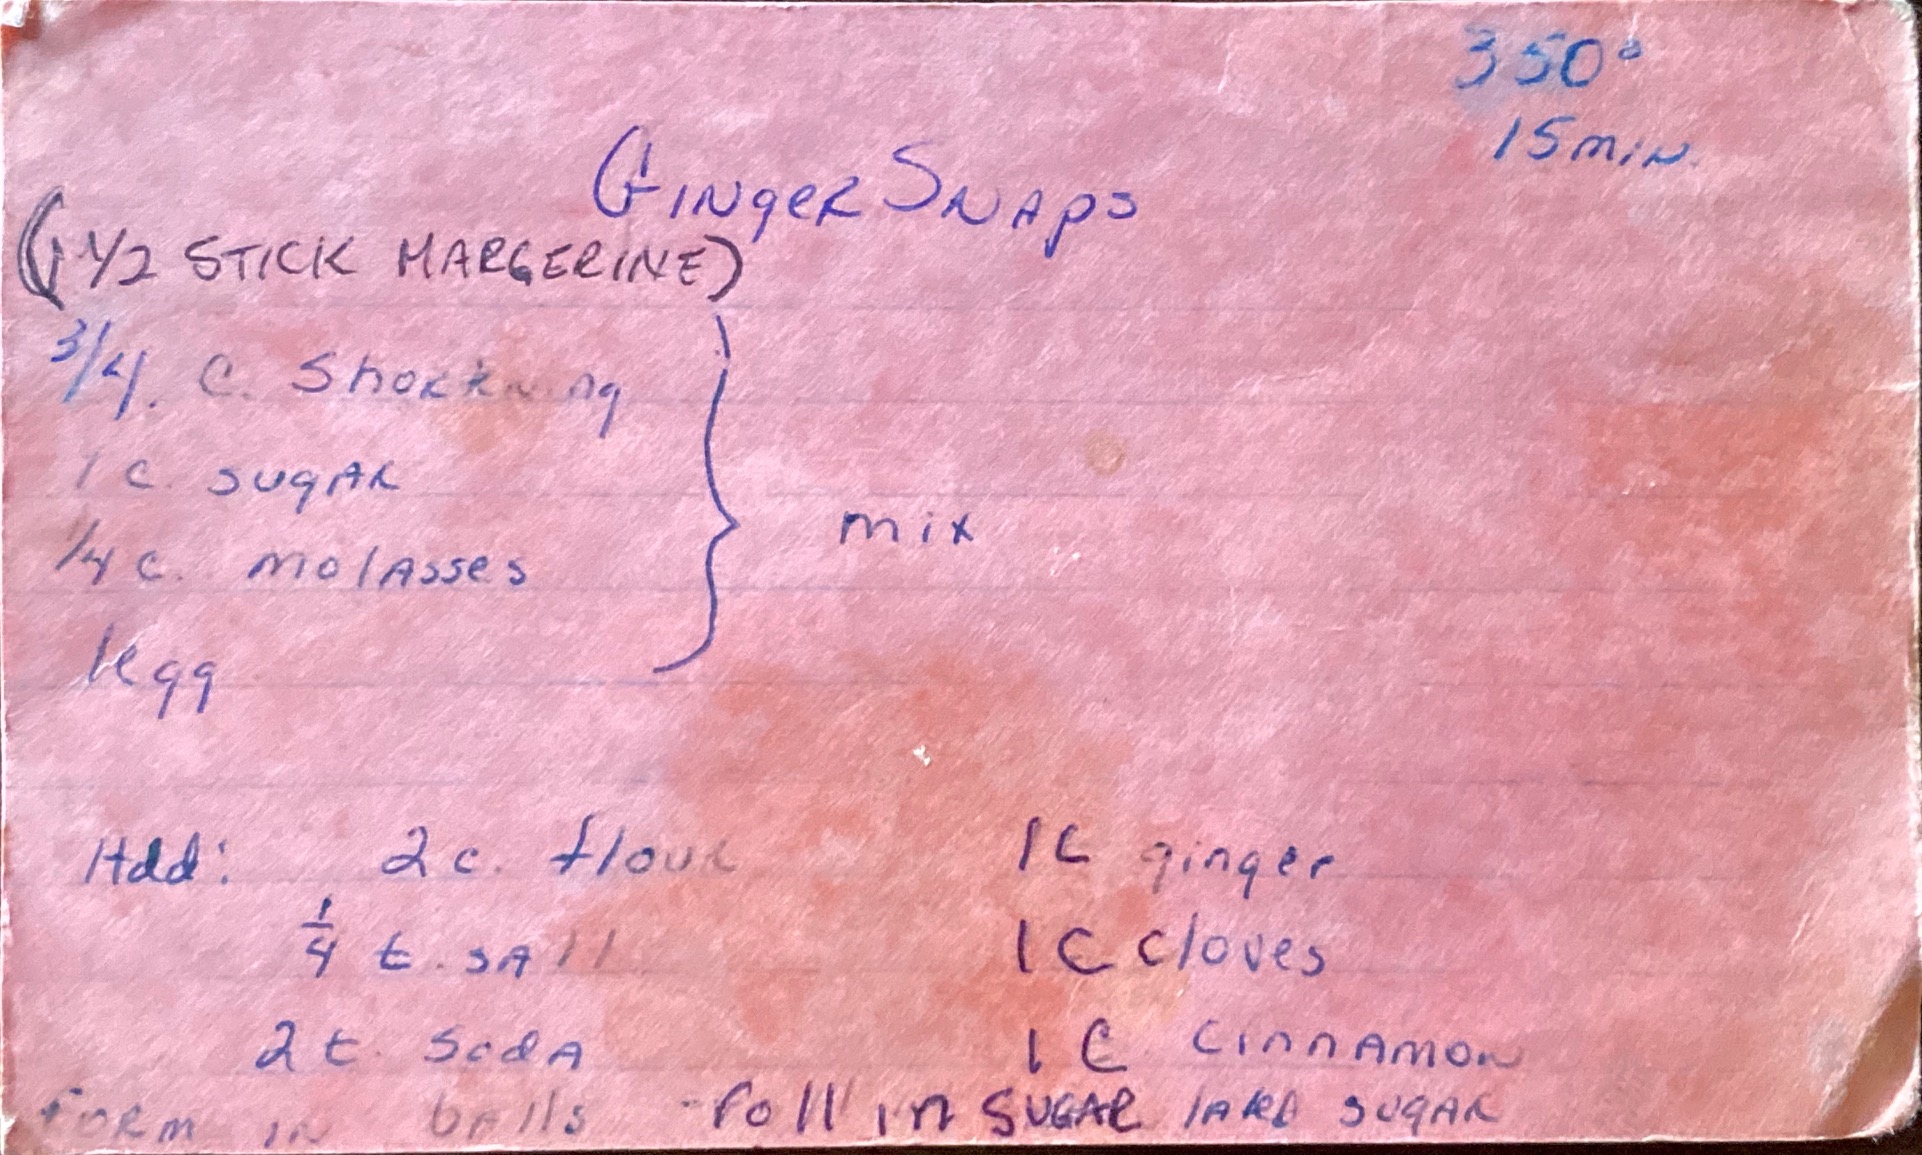 350°
15 min.
Ginger Snaps
(1 1/2 STICK MARGERINE)
3/4. C. Shortning
1 C. sugar
1/4 c. molasses
1 egg
mix
Add: 2 c. flour 1 C ginger
1/4 t. salt 1 C cloves
2 t. soda 1 C cinnamon
Form in balls - roll in SUGAR sugar